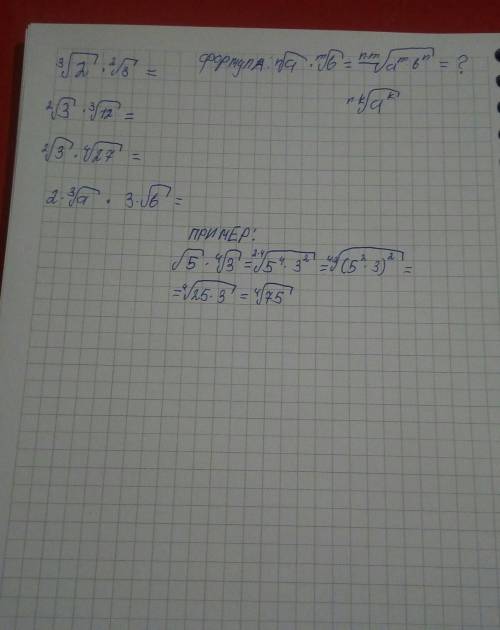 ∛2 · ²√3 = формула: ⁿ√a · ᵐ√b = ⁿᵐ√(aᵐ bⁿ) = ?
²√3 · ∛12 = ⁿᵏ√(aᵏ)
²√3 · ⁴√27 =
2·∛a · 3·√b =
ПРИМЕР:
√5 · ⁴√3 = ²·⁴√(5⁴ · 3²) = ⁴·²√((5² · 3)²) =
= ⁴√(25·3) = ⁴√75